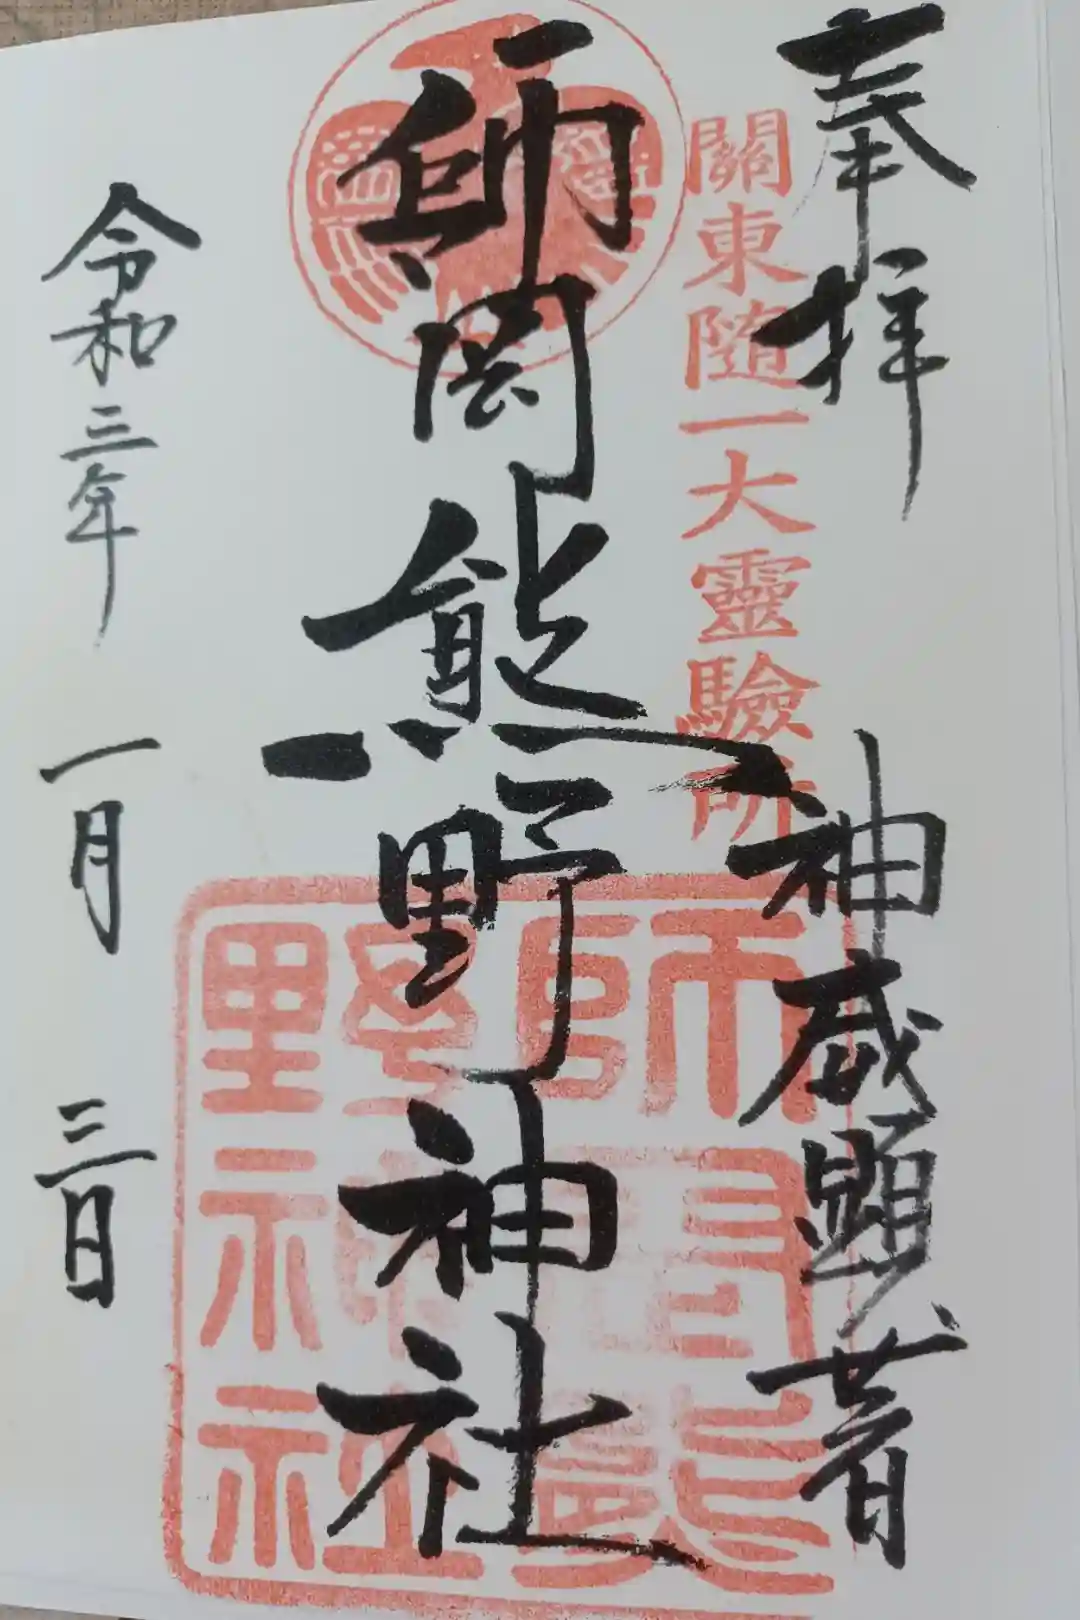 奉拝
神威顕著
關東随一大靈驗所
師岡熊野神社
師岡熊野神社
令和三年
一月
三日